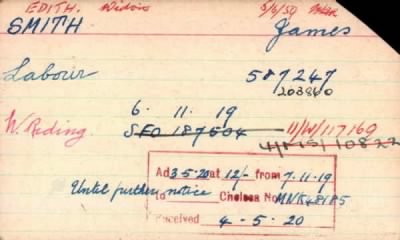 EDITH. Widow 5/6/50
SMITH James
Labour 587247
203840
6. 11. 19
W. Riding SFO 187504 11/W/117169
10822
Ad 3-5-20 at 12/- from 7.11.19
Until further notice to Chelsea No
Received 4-5.20